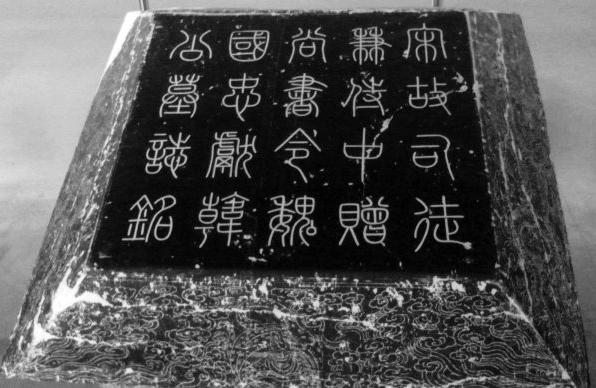 宋故司徒
兼侍中贈
尚書令魏
國忠獻韓
公墓誌銘